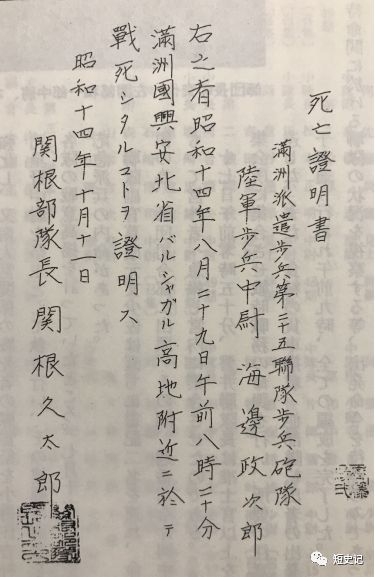 死亡證明書
滿洲派遣步兵第二十五聯隊步兵砲隊
陸軍步兵中尉 海邊政次郎
右之者昭和十四年八月二十九日午前八時二十分
滿洲國興安北省バルシャガル高地附近ニ於テ
戰死シタルコトヲ證明ス
昭和十四年十月十一日
関根部隊長 関根久太郎
短史记